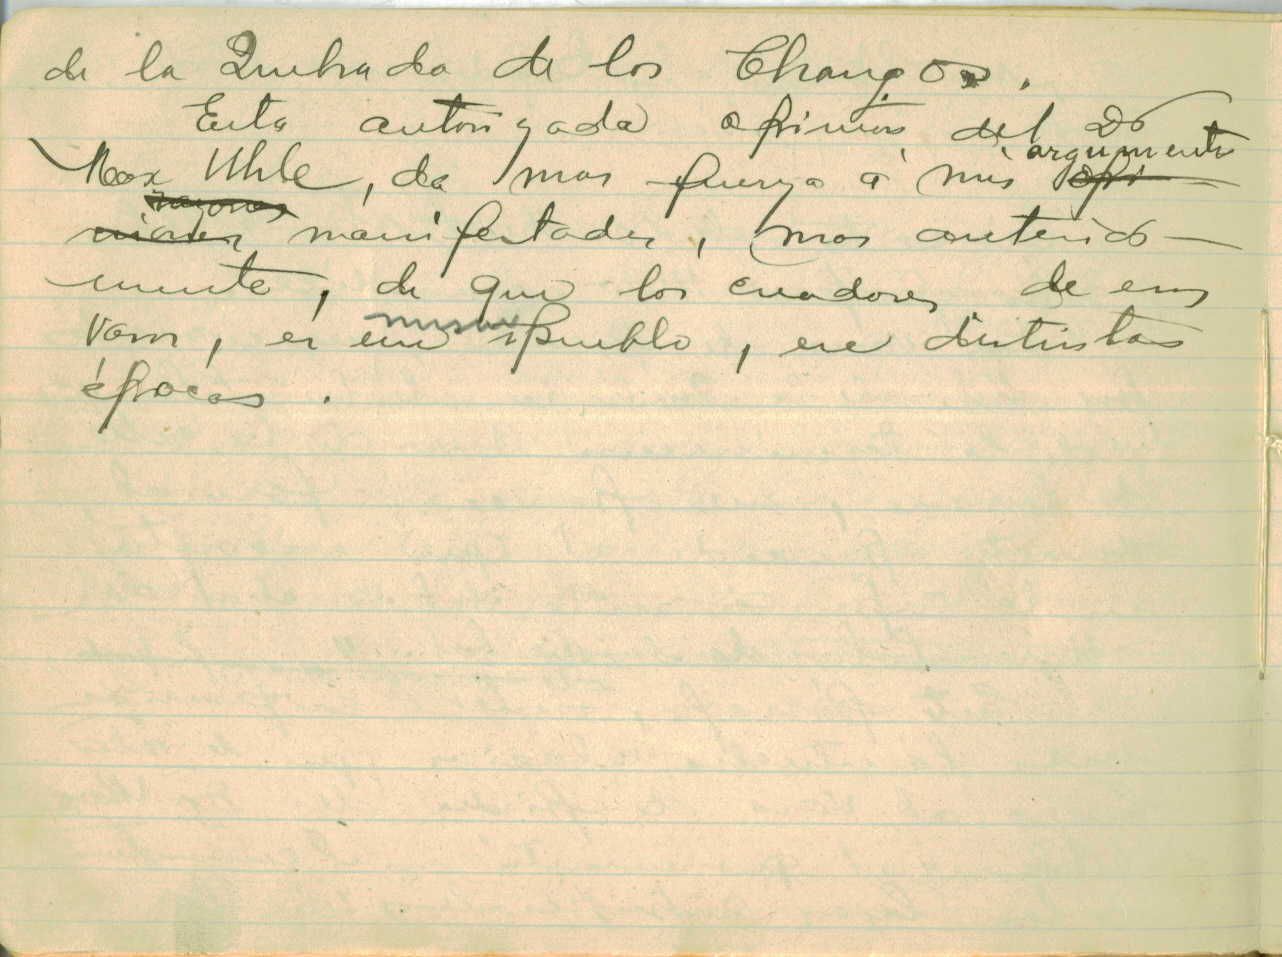 de la Quebrada de los Changos.
Esta autorizada opinion, del Dor
Max Uhle, da mas fuerza á mis argumentos opi-
razones
niones manifestadas, mas anterior-
mente, de que los creadores de esos
vasos, es un mismo pueblo, en distintas
épocas.